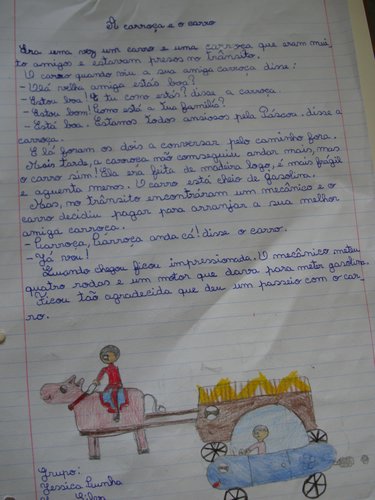 A carroça e o carro
Era uma vez um carro e uma carroça que eram mui_
to amigos e estavam presos no trânsito.
O carro quando viu a sua amiga carroça disse:
- Olá velha amiga estás boa?
- Estou boa! E tu como estás? disse a carroça.
- Estou bom! Como está a tua família?
- Está boa. Estamos todos ansiosos pela Páscoa. disse a
carroça.
E lá foram os dois a conversar pelo caminho fora.
Mais tarde, a carroça não conseguiu andar mais, mas
o carro sim! Ela era feita de madeira logo, é mais frágil
e aguenta menos. O carro está cheio de gasolina.
Mas, no trânsito encontraram um mecânico e o
carro decidiu pagar para arranjar a sua melhor
amiga carroça.
- Carroça, Carroça anda cá! disse o carro.
- Já vou!
Quando chegou ficou impressionada. O mecânico meteu
quatro rodas e um motor que darra para meter gasolina.
Ficou tão agradecida que deu um passeio com o car_
ro.
Grupo:
Jessica Cunha
Silva